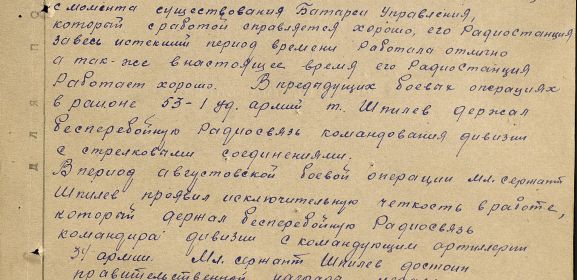 с момента существования Батареи Управления,
который с работой справляется хорошо, его Радиостанция
за весь истекший период времени Работала отлично
а так-же в настоящее время его Радиостанция
Работает хорошо. В предыдущих боевых операциях
в районе 53-1 уд. армий т. Шпилев держал
бесперебойную Радиосвязь командования дивизии
с стрелковыми соединениями.
В период августовской боевой операции Мл. сержант
Шпилев проявил исключительную четкость в работе,
который держал бесперебойную Радиосвязь
командира дивизии с командующим артиллерии
34 армии. Мл. сержант Шпилев достоин
правительственной